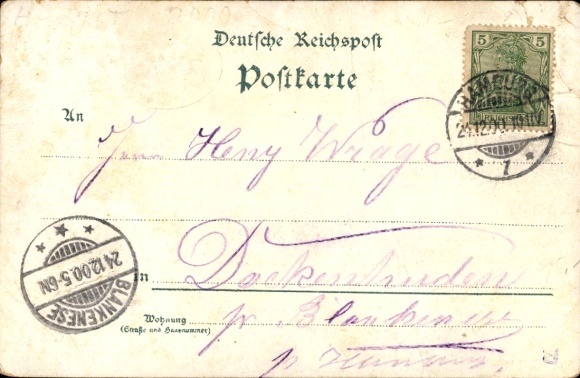 Deutsche Reichspost
Postkarte
5 5
HAMBURG
24.12.00. 10-11V.
* 1 *
An
Henry Wrage
24.12.00.5-6N
BLANKENESE
in Dockenhuden
Wohnung
(Straße und Hausnummer)
pr. Blankenese